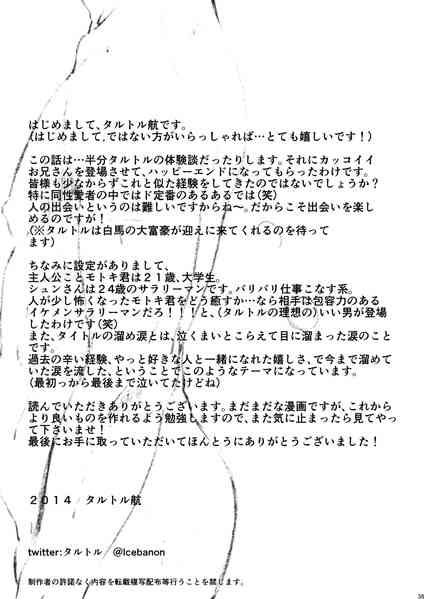 はじめまして、タルトル航です。
（はじめまして、ではない方がいらっしゃれば…とても嬉しいです！）
この話は…半分タルトルの体験談だったりします。それにカッコイイ
お兄さんを登場させて、ハッピーエンドになってもらったわけです。
皆様も少なからずこれと似た経験をしてきたのではないでしょうか？
特に同性愛者の中ではド定番のあるあるでは（笑）
人の出会いというのは難しいですからね～。だからこそ出会いを楽し
めるのですが！
（※タルトルは白馬の大富豪が迎えに来てくれるのを待って
ます）
ちなみに設定がありまして、
主人公ことモトキ君は２１歳、大学生。
シュンさんは２４歳のサラリーマンです。バリバリ仕事こなす系。
人が少し怖くなったモトキ君をどう癒すか…なら相手は包容力のある
「イケメンサラリーマンだろ！！！」と、（タルトルの理想の）いい男が登場
したわけです（笑）
また、タイトルの溜め涙とは、泣くまいとこらえて目に溜まった涙のこと
です。
過去の辛い経験、やっと好きな人と一緒になれた嬉しさ、で今まで溜めて
いた涙を流した、ということでこのようなテーマになっています。
（最初っから最後まで泣いてたけどね）
読んでいただきありがとうございます。まだまだな漫画ですが、これから
より良いものを作れるよう勉強しますので、また気に止まったら見てやっ
て下さいませ！
最後にお手に取っていただいてほんとうにありがとうございました！
２０１４　タルトル航
twitter:タルトル　@Icebanon
制作者の許諾なく内容を転載複写配布等行うことを禁じます。
38